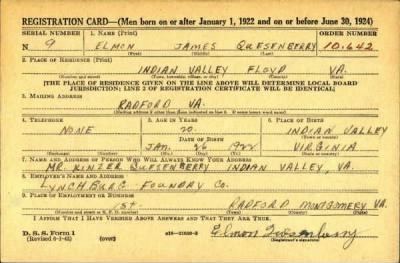 REGISTRATION CARD—(Men born on or after January 1, 1922 and on or before June 30, 1924)
SERIAL NUMBER 1. NAME (Print) ORDER NUMBER
N 9 ELMON JAMES QUESENBERRY 10.642
(First) (Middle) (Last)
2. PLACE OF RESIDENCE (Print)
INDIAN VALLEY FLOYD VA.
(Number and street) (Town, township, village, or city) (County) (State)
[THE PLACE OF RESIDENCE GIVEN ON THE LINE ABOVE WILL DETERMINE LOCAL BOARD
JURISDICTION; LINE 2 OF REGISTRATION CERTIFICATE WILL BE IDENTICAL]
3. MAILING ADDRESS
RADFORD VA.
[Mailing address if other than place indicated on line 2. If same insert word same]
4. TELEPHONE 5. AGE IN YEARS 6. PLACE OF BIRTH
NONE 20 INDIAN VALLEY
DATE OF BIRTH
JAN. 26 1922 VIRGINIA
7. NAME AND ADDRESS OF PERSON WHO WILL ALWAYS KNOW YOUR ADDRESS
MR. KINZER QUESENBERRY INDIAN VALLEY, VA.
8. EMPLOYER'S NAME AND ADDRESS
LYNCHBURG FOUNDRY CO.
9. PLACE OF EMPLOYMENT OR BUSINESS
1st. RADFORD MONTGOMERY VA.
I AFFIRM THAT I HAVE VERIFIED ABOVE ANSWERS AND THAT THEY ARE TRUE.
D. S. S. Form 1
(Revised 6-1-42) (over) Elmon Quesenberry
(Registrant's signature)